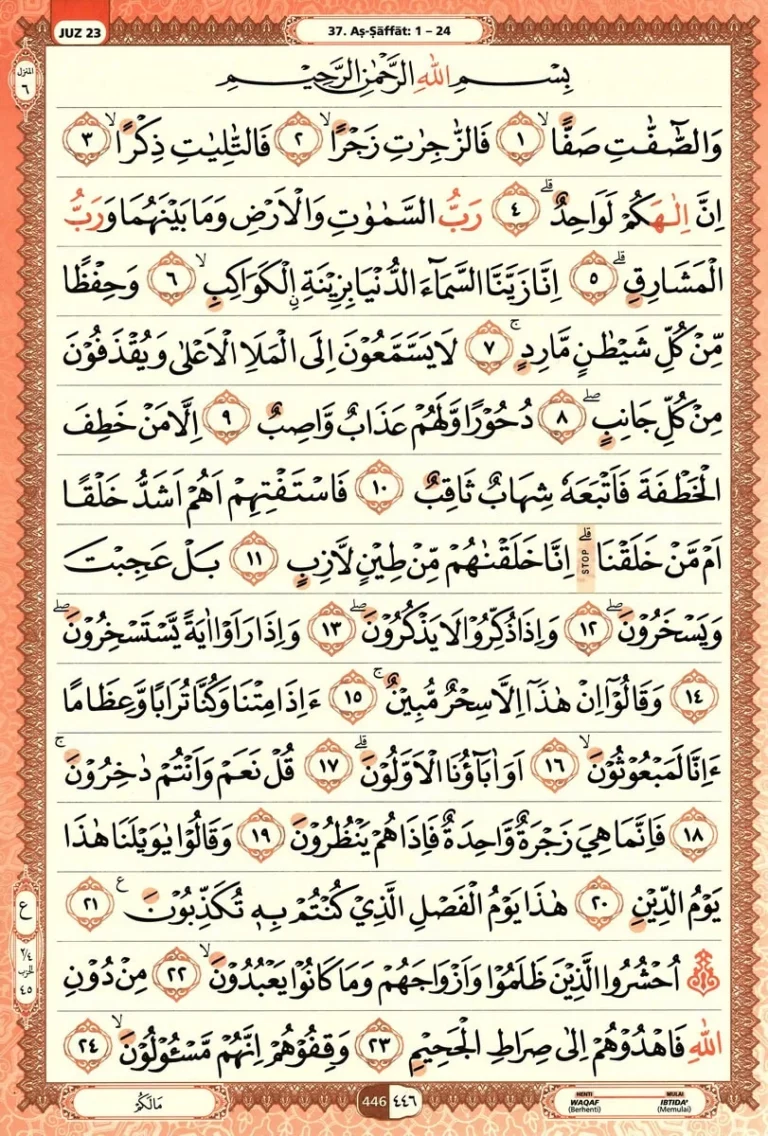 JUZ 23
37. Aṣ-Ṣāffāt: 1 – 24
المنزل
٦
بِسْمِ اللّٰهِ الرَّحْمٰنِ الرَّحِيْمِ
وَالصّٰۤفّٰتِ صَفًّاۙ ١ فَالزّٰجِرٰتِ زَجْرًاۙ ٢ فَالتّٰلِيٰتِ ذِكْرًاۙ ٣
اِنَّ اِلٰهَكُمْ لَوَاحِدٌۗ ٤ رَبُّ السَّمٰوٰتِ وَالْاَرْضِ وَمَا بَيْنَهُمَا وَرَبُّ
الْمَشَارِقِۗ ٥ اِنَّا زَيَّنَّا السَّمَاۤءَ الدُّنْيَا بِزِيْنَةِ ࣙالْكَوَاكِبِۙ ٦ وَحِفْظًا
مِّنْ كُلِّ شَيْطٰنٍ مَّارِدٍۚ ٧ لَا يَسَّمَّعُوْنَ اِلَى الْمَلَاِ الْاَعْلٰى وَيُقْذَفُوْنَ
مِنْ كُلِّ جَانِبٍۖ ٨ دُحُوْرًا وَّلَهُمْ عَذَابٌ وَّاصِبٌ ٩ اِلَّا مَنْ خَطِفَ
الْخَطْفَةَ فَاَتْبَعَهٗ شِهَابٌ ثَاقِبٌ ١٠ فَاسْتَفْتِهِمْ اَهُمْ اَشَدُّ خَلْقًا
اَمْ مَّنْ خَلَقْنَاۗ STOP اِنَّا خَلَقْنٰهُمْ مِّنْ طِيْنٍ لَّازِبٍ ١١ بَلْ عَجِبْتَ
وَيَسْخَرُوْنَۖ ١٢ وَاِذَا ذُكِّرُوْا لَا يَذْكُرُوْنَۖ ١٣ وَاِذَا رَاَوْا اٰيَةً يَّسْتَسْخِرُوْنَۖ
١٤ وَقَالُوْٓا اِنْ هٰذَآ اِلَّا سِحْرٌ مُّبِيْنٌۚ ١٥ ءَاِذَا مِتْنَا وَكُنَّا تُرَابًا وَّعِظَامًا
ءَاِنَّا لَمَبْعُوْثُوْنَۙ ١٦ اَوَاٰبَاۤؤُنَا الْاَوَّلُوْنَۗ ١٧ قُلْ نَعَمْ وَاَنْتُمْ دٰخِرُوْنَۚ
١٨ فَاِنَّمَا هِيَ زَجْرَةٌ وَّاحِدَةٌ فَاِذَا هُمْ يَنْظُرُوْنَ ١٩ وَقَالُوْا يٰوَيْلَنَا هٰذَا
يَوْمُ الدِّيْنِ ٢٠ هٰذَا يَوْمُ الْفَصْلِ الَّذِيْ كُنْتُمْ بِهٖ تُكَذِّبُوْنَ ࣖ ٢١
۞ اُحْشُرُوا الَّذِيْنَ ظَلَمُوْا وَاَزْوَاجَهُمْ وَمَا كَانُوْا يَعْبُدُوْنَۙ ٢٢ مِنْ دُوْنِ
اللّٰهِ فَاهْدُوْهُمْ اِلٰى صِرَاطِ الْجَحِيْمِ ٢٣ وَقِفُوْهُمْ اِنَّهُمْ مَّسْـُٔوْلُوْنَۙ ٢٤
ع
٢/٤
الحزب
٤٥
مَالَكُمْ
446 ٤٤٦
HENTI
WAQAF
(Berhenti)
MULAI
IBTIDA'
(Memulai)